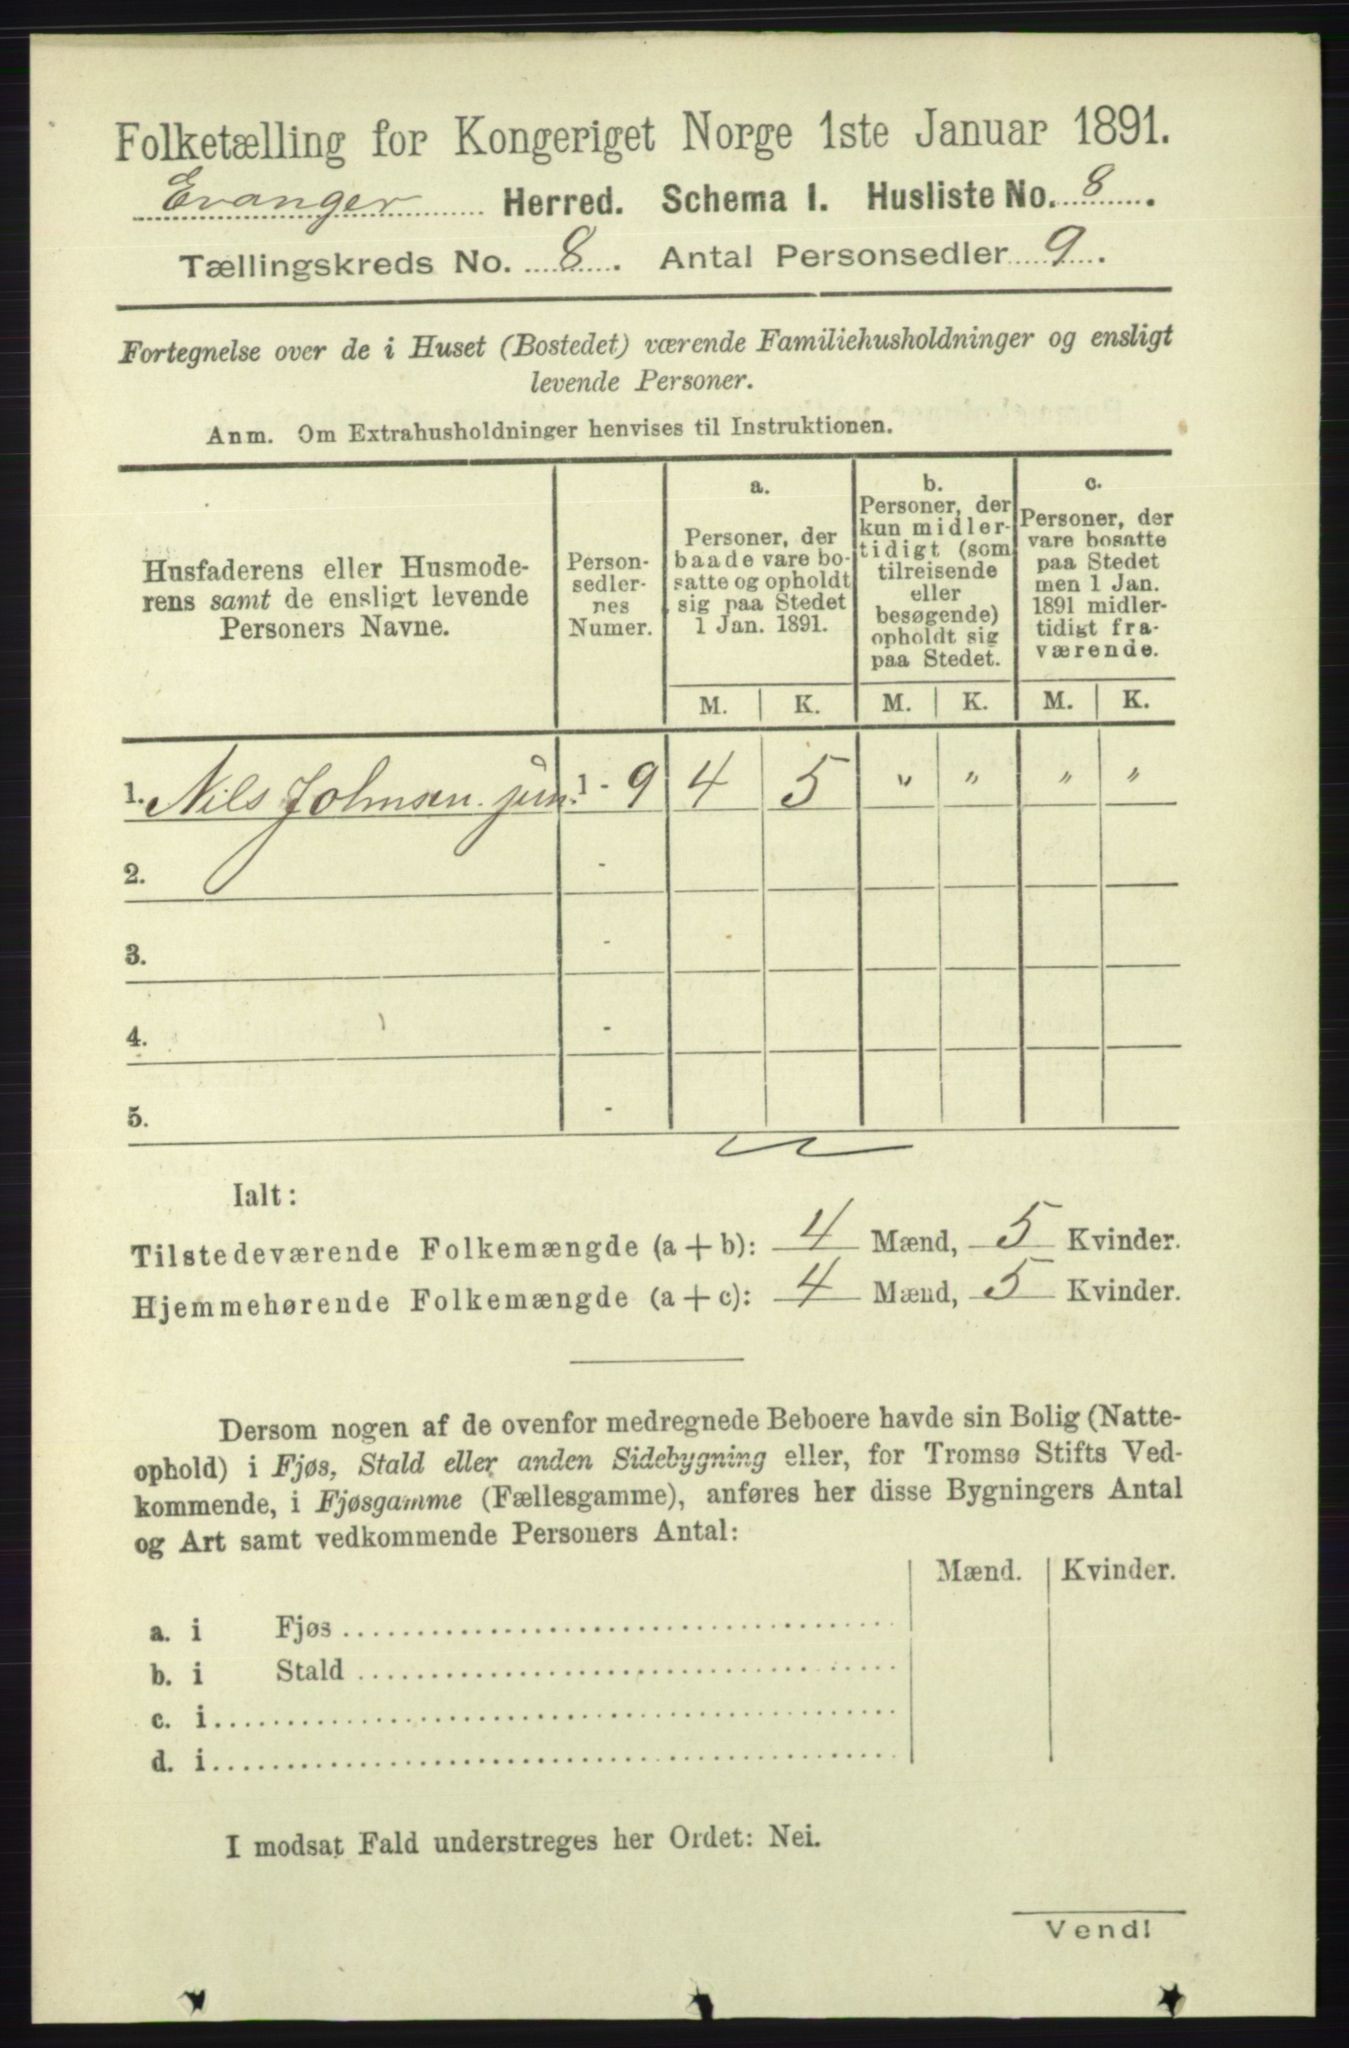 Folketælling for Kongeriget Norge 1ste Januar 1891.
Evanger Herred. Schema I. Husliste No. 8.
Tællingskreds No. 8. Antal Personsedler 9.
Fortegnelse over de i Huset (Bostedet) værende Familiehusholdninger og ensligt
levende Personer.
Anm. Om Extrahusholdninger henvises til Instruktionen.
Husfaderens eller Husmode-
rens samt de ensligt levende
Personers Navne.
Person-
sedler-
nes
Numer.
a.
Personer, der
baade vare bo-
satte og opholdt
sig paa Stedet
1 Jan. 1891.
b.
Personer, der
kun midler-
tidigt (som
tilreisende
eller
besøgende)
opholdt sig
paa Stedet.
c.
Personer, der
vare bosatte
paa Stedet
men 1 Jan.
1891 midler-
tidigt fra-
værende.
M. K. M. K. M. K.
1. Nils Johnsen jun. 1 - 9 4 5 " " " "
2. -
3. -
4. -
5. -
Ialt:
Tilstedeværende Folkemængde (a + b): 4 Mænd, 5 Kvinder.
Hjemmehørende Folkemængde (a + c): 4 Mænd, 5 Kvinder.
Dersom nogen af de ovenfor medregnede Beboere havde sin Bolig (Natte-
ophold) i Fjøs, Stald eller anden Sidebygning eller, for Tromsø Stifts Ved-
kommende, i Fjøsgamme (Fællesgamme), anføres her disse Bygningers Antal
og Art samt vedkommende Personers Antal:
Mænd. Kvinder.
a. i Fjøs
b. i Stald
c. i
d. i
I modsat Fald understreges her Ordet: Nei.
Vend!